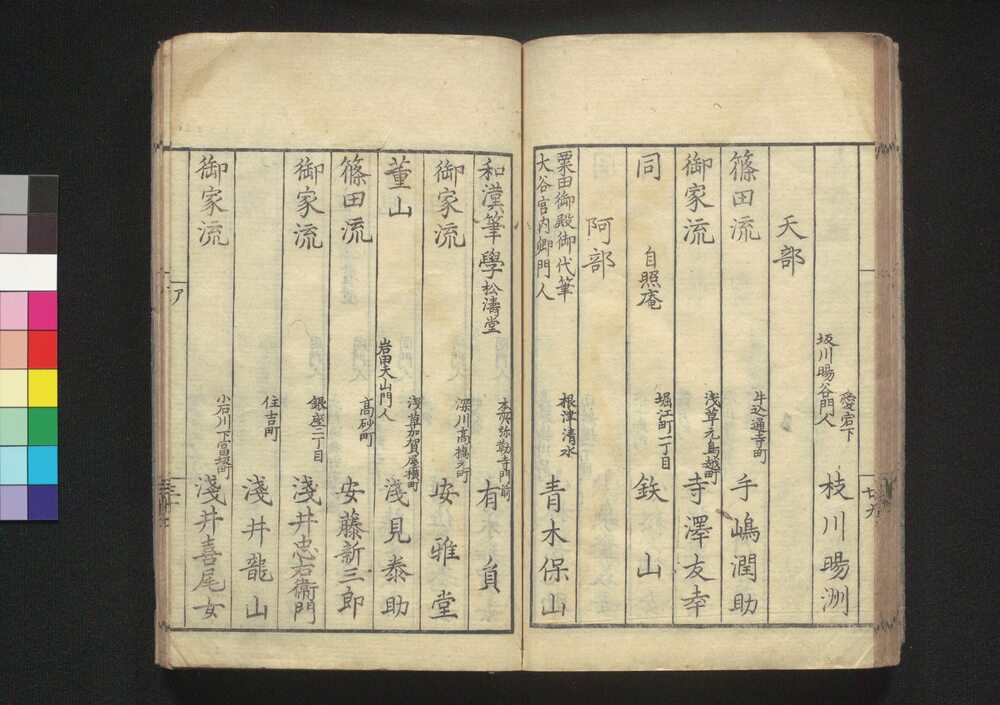 愛宕下
坂川暘谷門人
枝川暘洲
天部
牛込通寺町
篠田流
手嶋潤助
浅草元鳥越町
御家流
寺澤友幸
堀江町一丁目
同
自照庵
鉄山
阿部
根津清水
粟田御殿御代筆
大谷宮内卿門人
青木保山
本所弥勒寺門前
和漢筆學松濤堂
有木負
深川髙橋元町
御家流
安雅堂
浅草加賀屋横町
岩田大山門人
董山
淺見泰助
髙砂町
篠田流
安藤新三郎
銀座二丁目
御家流
淺井忠右衛門
住吉町
淺井龍山
小石川下冨坂町
御家流
淺井喜尾女
ア
七九